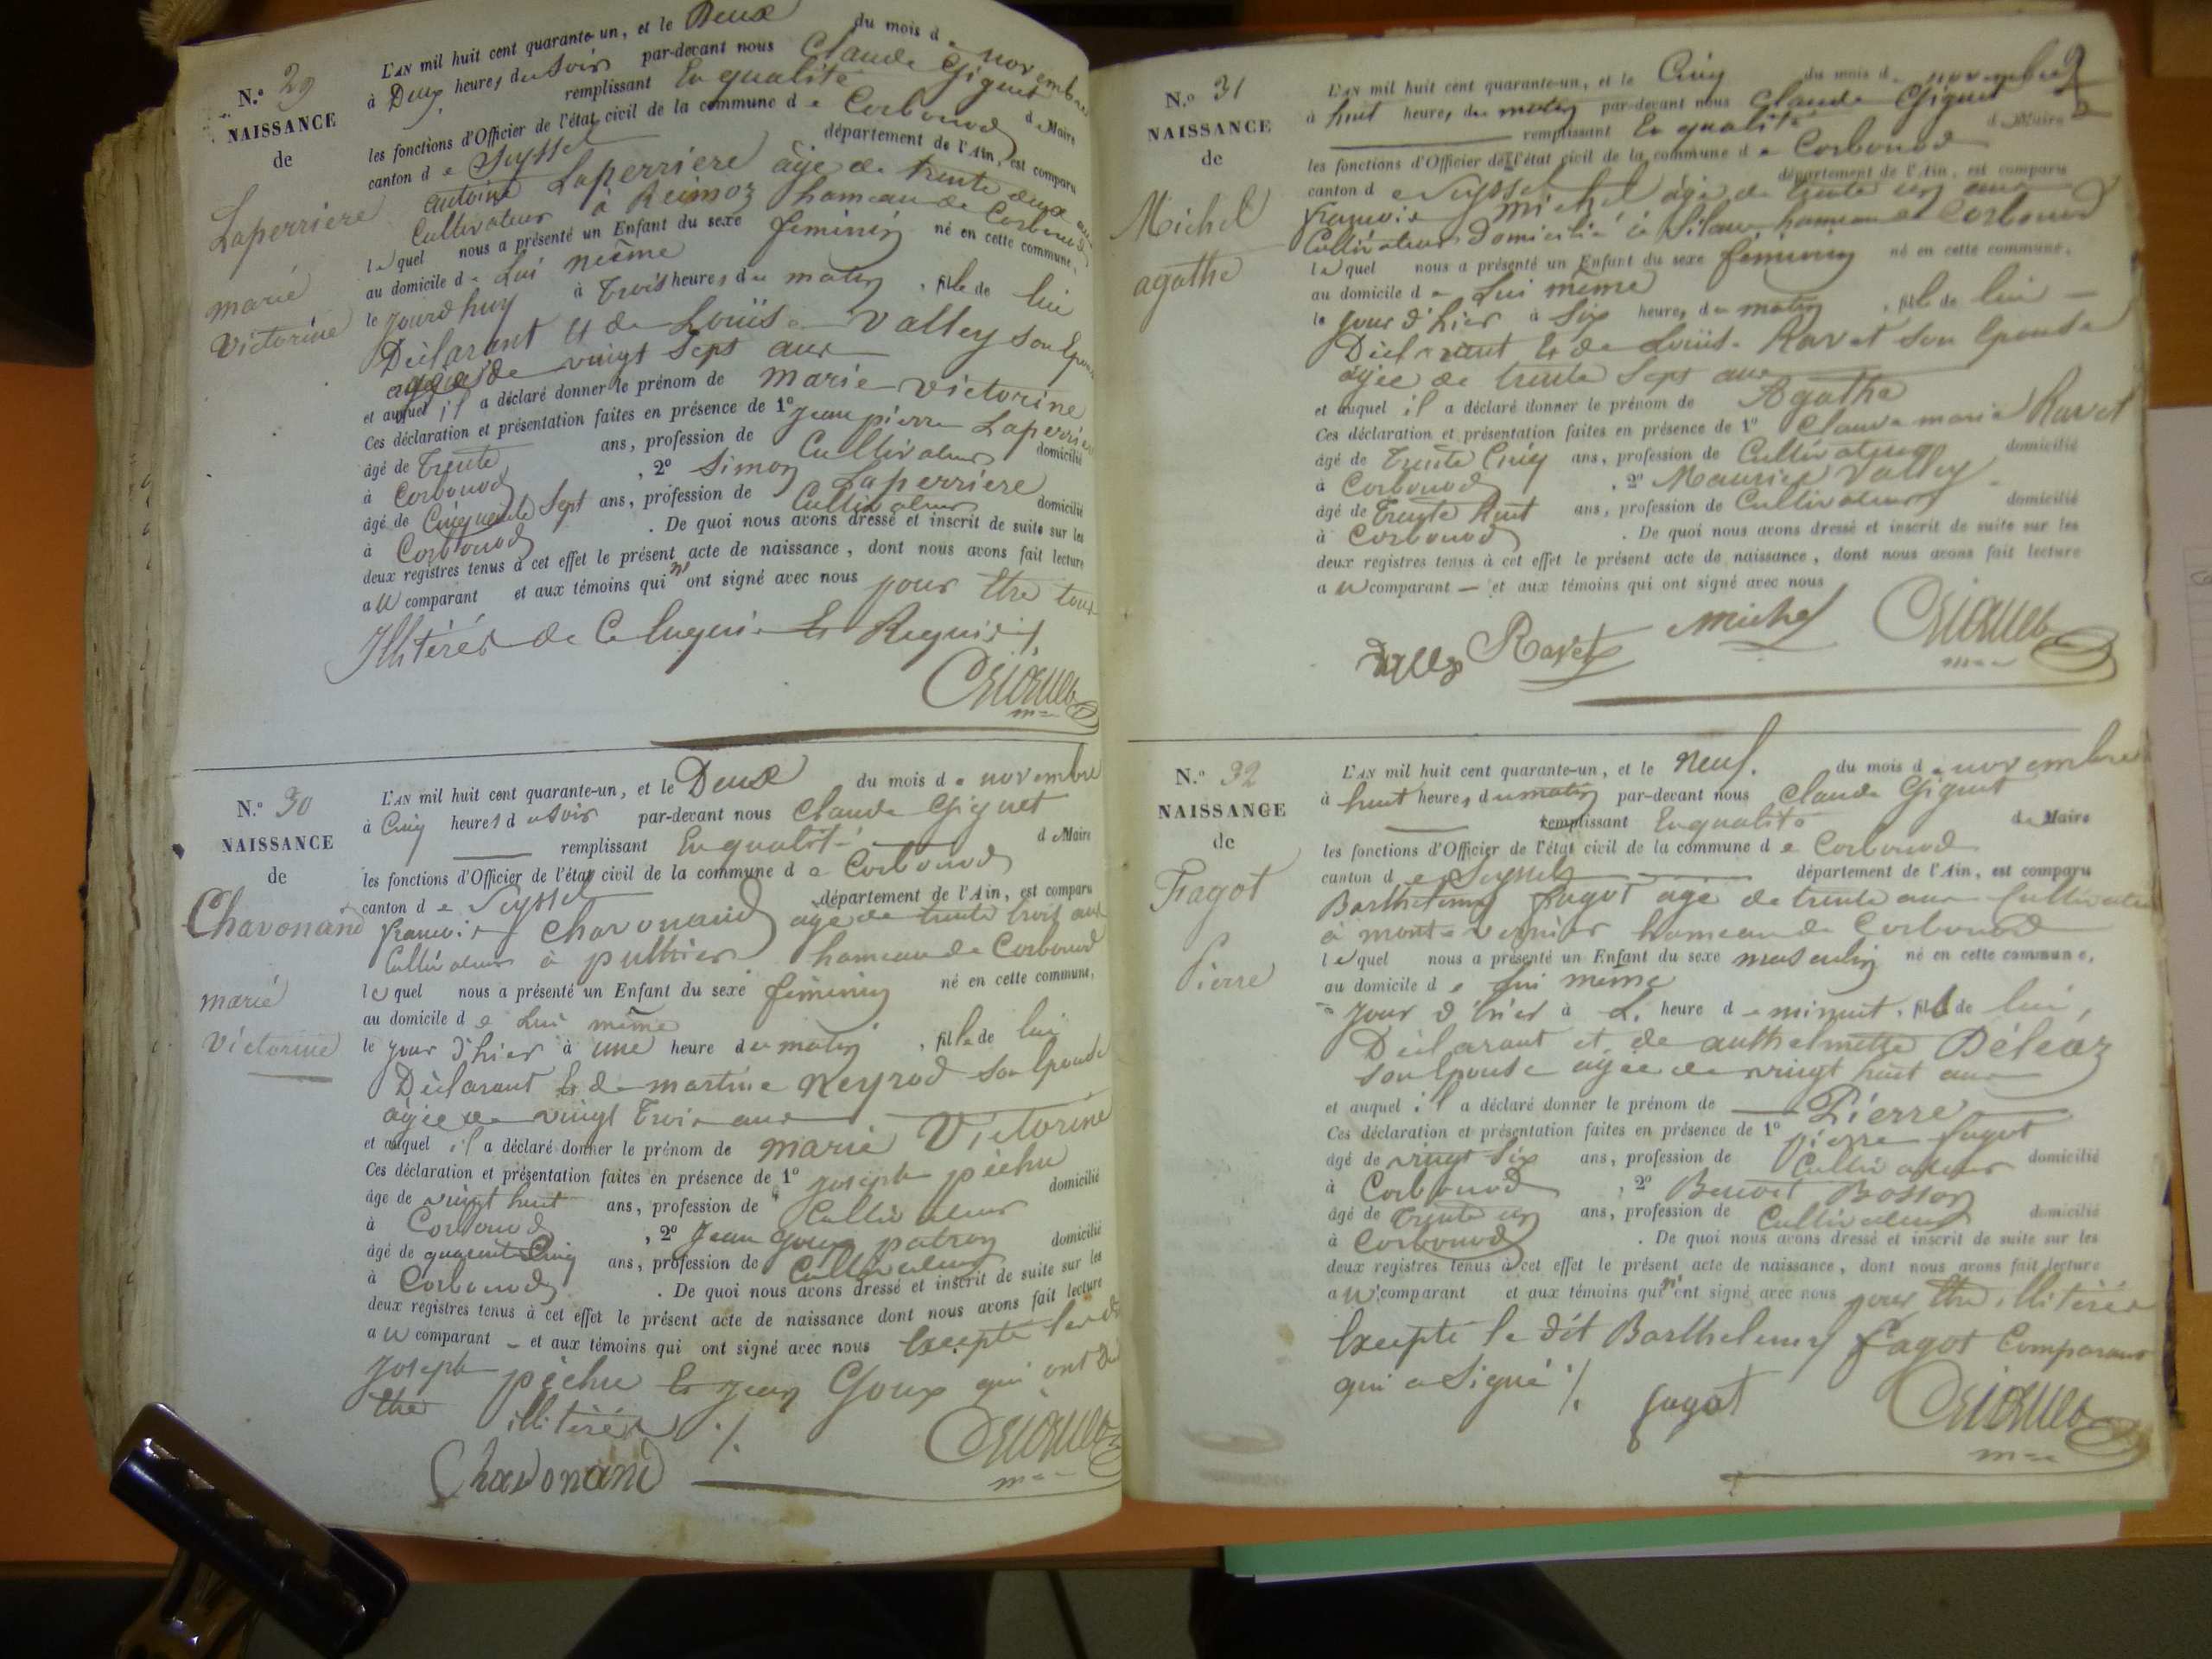 N.° 29
NAISSANCE
de
Laperriere
marie
Victorine
L'AN mil huit cent quarante-un, et le Deux du mois de novembre
à Deux heures du Soir par-devant nous Claude Giguet
remplissant En qualité de Maire
les fonctions d'Officier de l'état civil de la commune de Corbonod
canton de Seyssel département de l'Ain, est comparu
antoine Laperriere âgé de trente deux ans
Cultivateur à Reimoz hameau de Corbonod
lequel nous a présenté un Enfant du sexe feminin né en cette commune,
au domicile de Lui même
le jourdhuy à trois heures du matin, fille de lui
Déclarant Et de Louise Valley son Epouse
agée de vingt Sept ans
et auquel il a déclaré donner le prénom de marie victorine
Ces déclaration et présentation faites en présence de 1° jean pierre Laperriere
âgé de trente ans, profession de Cultivateur domicilié
à Corbonod, 2° Simon Laperriere
âgé de Cinquente Sept ans, profession de Cultivateur domicilié
à Corbonod. De quoi nous avons dressé et inscrit de suite sur les
deux registres tenus à cet effet le présent acte de naissance, dont nous avons fait lecture
au comparant et aux témoins qui n'ont signé avec nous pour Etre tous
Illitérés de Ce Enquis Et Requis ./.
Giguet
m
N.° 30
NAISSANCE
de
Chavonand
marie
Victorine
L'AN mil huit cent quarante-un, et le Deux du mois de novembre
à Cinq heures du Soir par-devant nous Claude Giguet
remplissant En qualité de Maire
les fonctions d'Officier de l'état civil de la commune de Corbonod
canton de Seyssel département de l'Ain, est comparu
francois Chavonand agé de trente trois ans
Cultivateur à puthier hameau de Corbonod
lequel nous a présenté un Enfant du sexe feminin né en cette commune,
au domicile de Lui même
le jour d'hier à une heure du matin, fille de lui
Déclarant Et de martine Neyrod son Epouse
âgée de vingt trois ans
et auquel il a déclaré donner le prénom de marie Victorine
Ces déclaration et présentation faites en présence de 1° joseph péchu
âgé de vingt huit ans, profession de Cultivateur domicilié
à Corbonod, 2° Jean Goux patron
âgé de quarente Cinq ans, profession de Cultivateur domicilié
à Corbonod. De quoi nous avons dressé et inscrit de suite sur les
deux registres tenus à cet effet le présent acte de naissance dont nous avons fait lecture
au comparant et aux témoins qui ont signé avec nous Excepté les dt
joseph péchu Et jean Goux qui ont dit
Etre illitérés ./.
Chavonand
Giguet
m
N.° 31
NAISSANCE
de
Michel
agathe
L'AN mil huit cent quarante-un, et le Cinq du mois de novembre
à huit heures du matin par-devant nous Claude Giguet
remplissant En qualité de Maire
les fonctions d'Officier de l'état civil de la commune de Corbonod
canton de Seyssel département de l'Ain, est comparu
francois michel âgé de trente un ans
Cultivateur Domicilié à Silan hameau de Corbonod
lequel nous a présenté un Enfant du sexe féminin né en cette commune,
au domicile de Lui même
le jour d'hier à Six heures du matin, fille de lui
Déclarant Et de Louise Ravet son Epouse
âgée de trente Sept ans
et auquel il a déclaré donner le prénom de Agathe
Ces déclaration et présentation faites en présence de 1° Claude marie Ravet
âgé de Trente Cinq ans, profession de Cultivateur domicilié
à Corbonod, 2° Maurice Valley
âgé de Trente huit ans, profession de Cultivateur domicilié
à Corbonod. De quoi nous avons dressé et inscrit de suite sur les
deux registres tenus à cet effet le présent acte de naissance, dont nous avons fait lecture
au comparant et aux témoins qui ont signé avec nous
Valley Ravet michel Giguet
m
N.° 32
NAISSANCE
de
Fagot
Pierre
L'AN mil huit cent quarante-un, et le neuf. du mois de novembre
à huit heures du matin par-devant nous Claude Giguet
remplissant En qualité de Maire
les fonctions d'Officier de l'état civil de la commune de Corbonod
canton de Seyssel département de l'Ain, est comparu
Barthelemy fagot agé de trente ans Cultivateur
à monte vernier hameau de Corbonod
lequel nous a présenté un Enfant du sexe masculin né en cette commune,
au domicile de Lui même
jour d'hier à L. heure de minuit, fils de lui,
Déclarant et de anthelmette Déléaz
son Epouse agée de vingt huit ans
et auquel il a déclaré donner le prénom de Pierre
Ces déclaration et présentation faites en présence de 1° pierre fagot
âgé de vingt Six ans, profession de Cultivateur domicilié
à Corbonod, 2° Benoit Bosson
âgé de Trente un ans, profession de Cultivateur domicilié
à Corbonod. De quoi nous avons dressé et inscrit de suite sur les
deux registres tenus à cet effet le présent acte de naissance, dont nous avons fait lecture
au comparant et aux témoins qui n'ont signé avec nous pour Etre illitérés
Excepté le dit Barthelemy fagot Comparant
qui a Signé ./. fagot Giguet
m